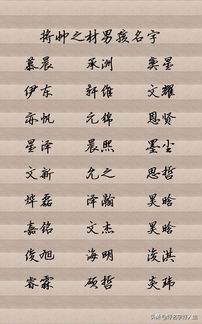 将帅之材男孩名字
慕晨 承洲 奕星
伊东 轩维 文耀
亦帆 元锦 恩贤
星泽 晨熙 星尘
文新 允之 思哲
烨磊 泽瀚 昊晗
嘉铭 文杰 昊晗
俊旭 海明 浚洪
睿霖 硕哲 奕玮